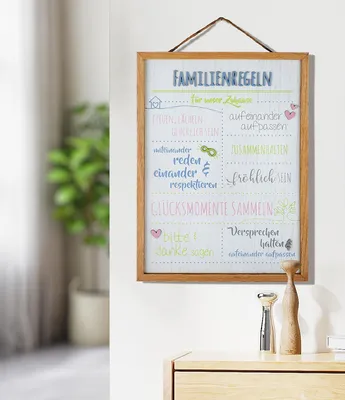 FAMILIENREGELN
Für unser Zuhause
aufeinander
aufpassen
miteinander
reden
einander &
respektieren
ZUSAMMENHALTEN
fröhlich SEIN
GLÜCKSMOMENTE SAMMELN
bitte!
danke sagen
Versprechen
halten
aufeinander aufpassen